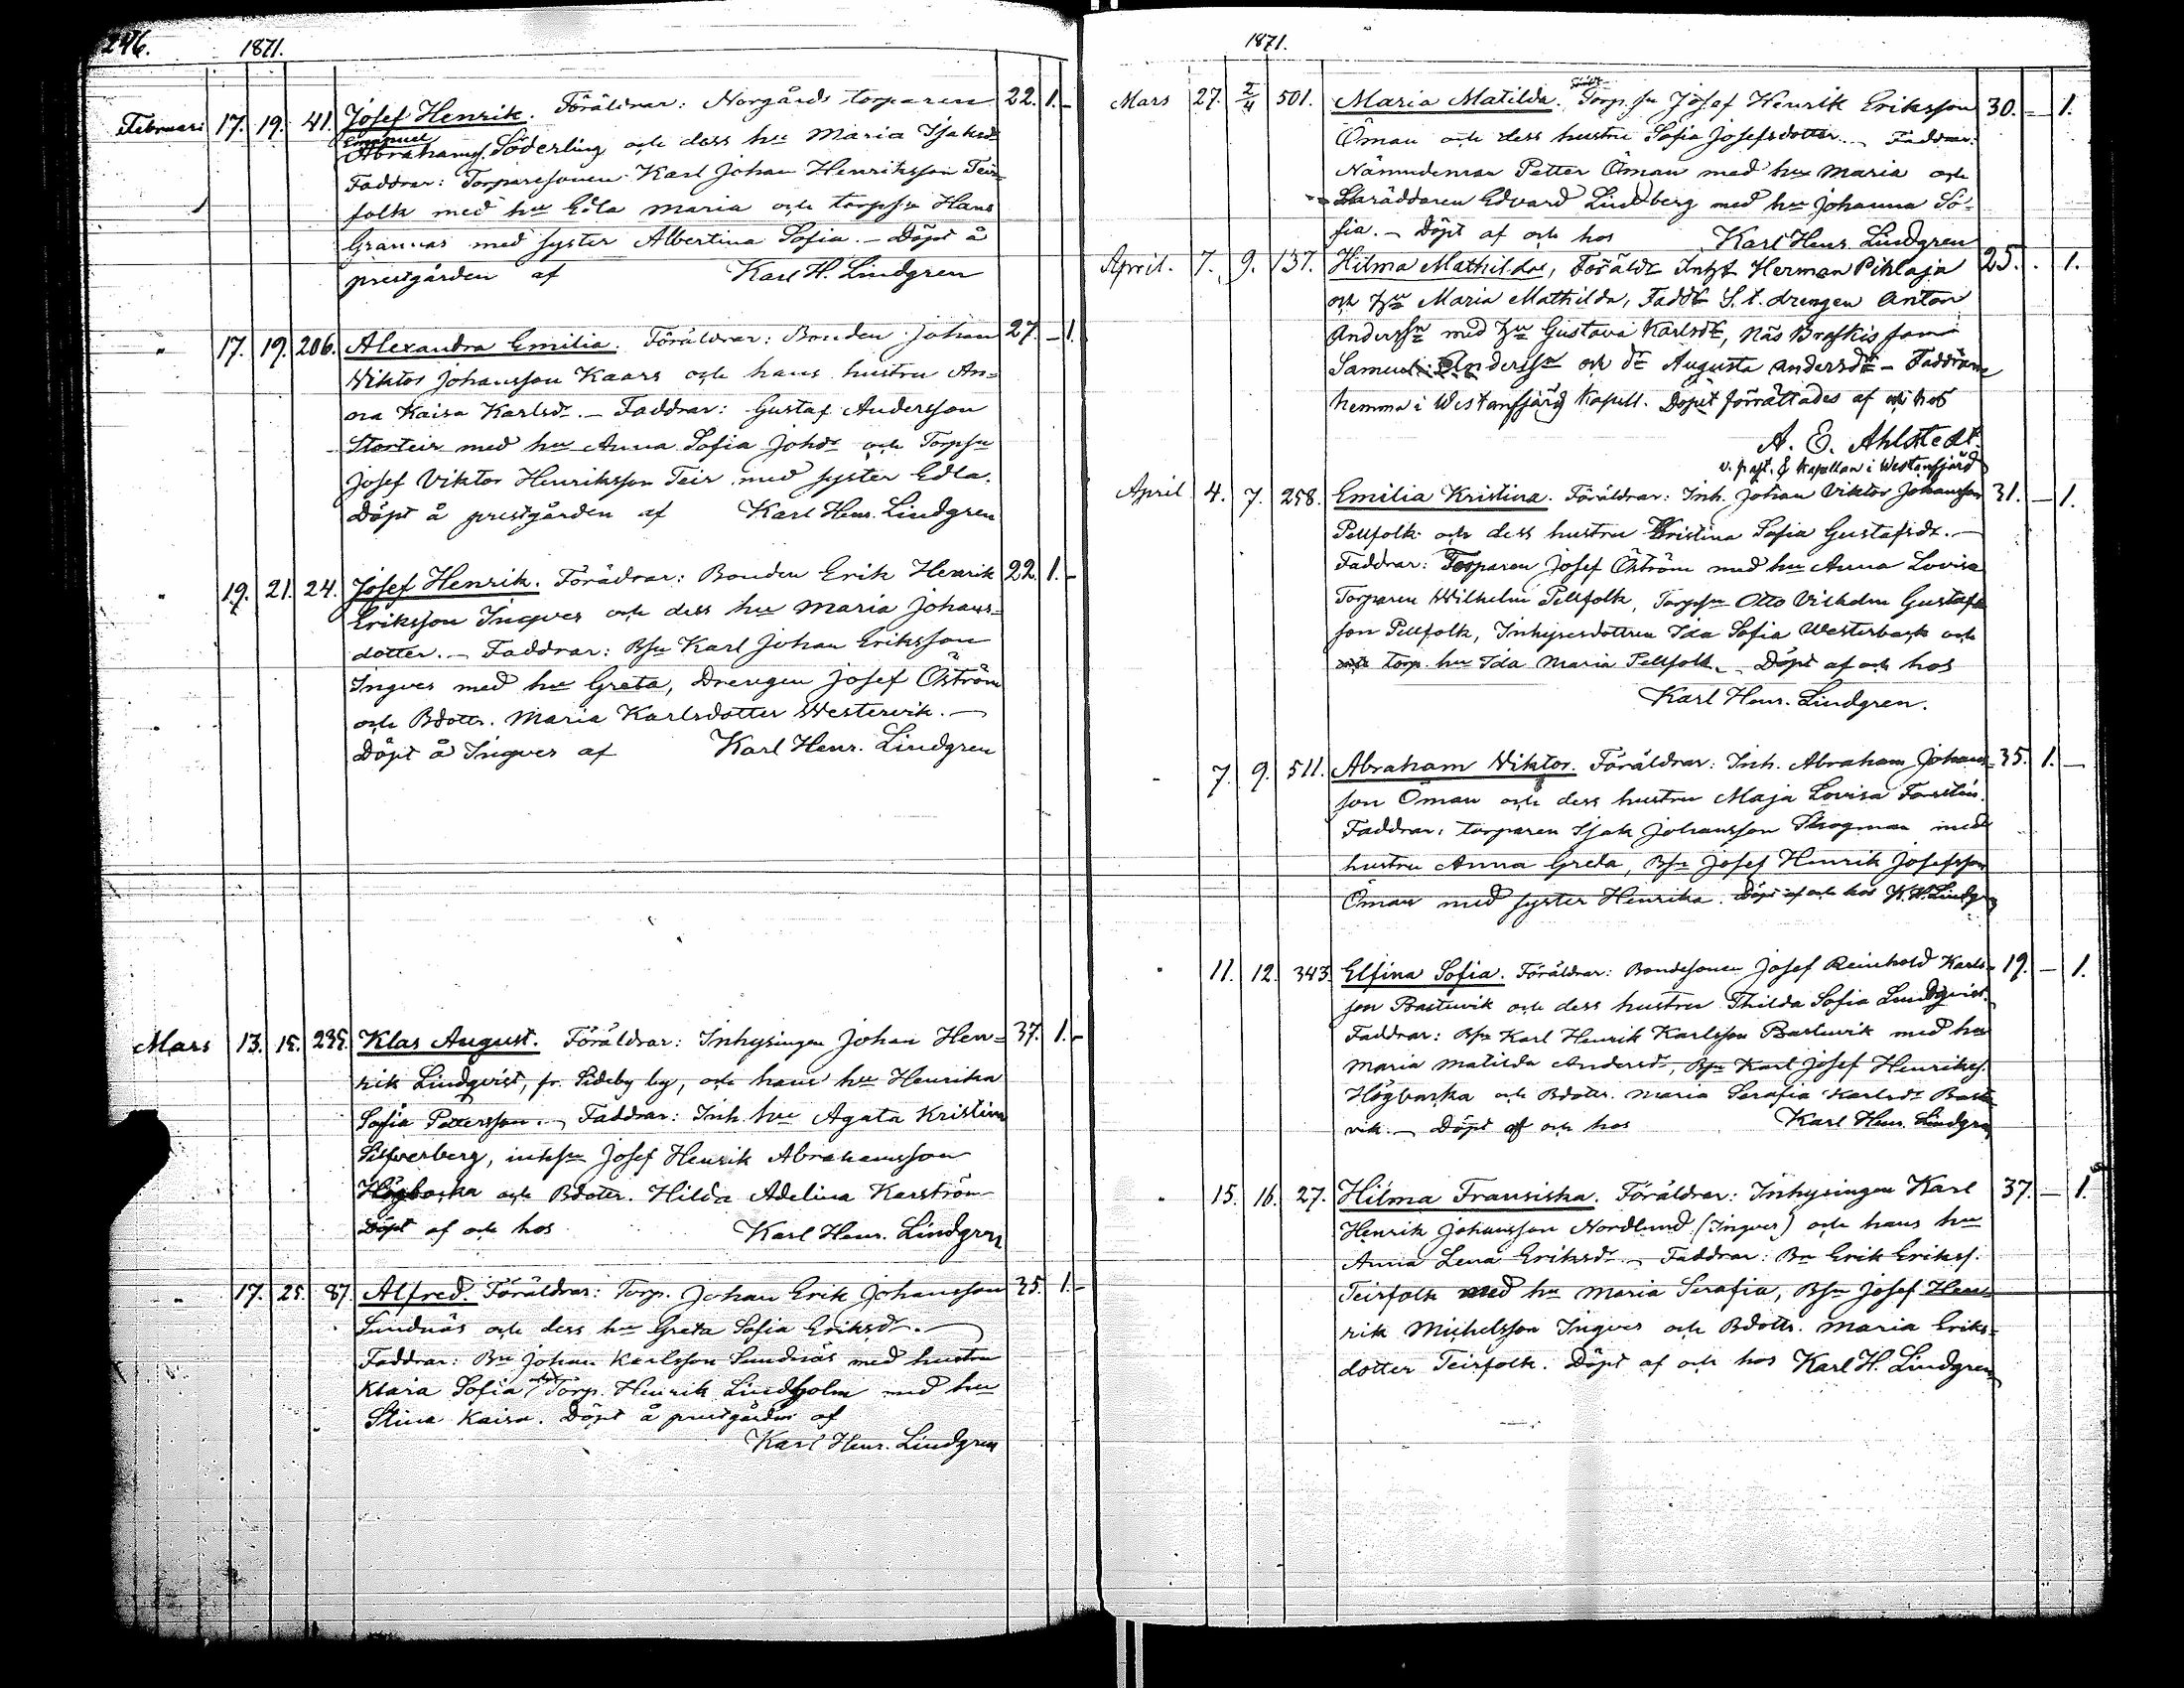 246.
1871.
Februari 17. 19. 41. Josef Henrik. Föräldrar: Norgårds torparen 22. 1. –
Emanuel
Abrahams. Söderling och dess hu Maria Isaksd
Faddrar: Torparesonen Karl Johan Henriksson Teir-
folk med hu Edla Maria och torpsn Hans
Grannas med syster Albertina Sofia. – Döpt å
prestgården af Karl H. Lindgren
" 17. 19. 206. Alexandra Emilia. Föräldrar: Bonden Johan 27. – 1.
Viktor Johansson Kaars och hans hustru An=
na Kaisa Karlsdr. – Faddrar: Gustaf Andersson
Storteir med hu Anna Sofia Johdr och Torpsn
Josef Viktor Henriksson Teir med syster Edla.
Döpt å prestgården af Karl Henr. Lindgren
" 19. 21. 24. Josef Henrik. Förädrar: Bonden Erik Henrik 22. 1. –
Eriksson Ingves och dess hu Maria Johans=
dotter. – Faddrar: Bsn Karl Johan Eriksson
Ingves med hu Greta, Drengen Josef Öström
och Bdottr. Maria Karlsdotter Westervik. –
Döpt å Ingves af Karl Henr. Lindgren
Mars 13. 15. 235. Klas August. Föräldrar: Inhysingen Johan Hen= 37. 1. –
rik Lindqvist, fr. Sideby by, och hans hu Henrika
Sofia Pettersson. – Faddrar: Inh. hu Agata Kristina
Silfverberg, inhsn Josef Henrik Abrahamsson
Högbacka och Bdoter. Hilda Adelina Karström
Döpt af och hos Karl Henr. Lindgren
" 17. 25. 87. Alfred. Föräldrar: Torp. Johan Erik Johansson 35. 1. –
Sundnäs och dess hu Greta Sofia Eriksdr. –
Faddrar: Bn Johan Karlsson Sundnäs med hustru
Klara Sofia, Torp. Henrik Lindholm med hu
Stina Kaisa. Döpt å prestgården af
Karl Henr. Lindgren
1871.
Mars 27. 2/4 501. Maria Matilda. Torp. sn Josef Henrik Eriksson 30. – 1.
Öman och dess hustru Sofia Josefsdotter. – Faddrar:
Nämndeman Petter Öman med hu Maria och
Skräddaren Edvard Lindberg med hu Johanna So-
fia. – Döpt af och hos Karl Henr. Lindgren
April. 7. 9. 137. Hilma Mathilda, Föräldr Inhys Herman Pihlaja 25. . 1.
och hu Maria Mathilda, Faddr S. t. drengen Anton
Anderssn med hu Gustava Karlsdr, Näs
Samuel Anderssn och dr Augusta Andersdr – Faddrarne
hemma i Westanfjärd Kapell. Döpet förrättades af och hos
A. E. Ahlstedt.
v. past. & Kapellan i Westanfjärd
April 4. 7. 258. Emilia Kristina. Föräldrar: Inh. Johan Viktor Johansson 31. – 1.
Pellfolk och dess hustru Kristina Sofia Gustafsdr. –
Faddrar: Torparen Josef Öström med hu Anna Lovisa
Torparen Wilhelm Pellfolk, Torpsn Otto Vilhelm Gustafs
son Pellfolk, Inhysesdottren Ida Sofia Westerback och
Torp. hu Ida Maria Pellfolk. – Döpt af och hos
Karl Henr. Lindgren.
" 7. 9. 511. Abraham Viktor. Föräldrar: Inh. Abraham Johans= 35. 1. –
son Öman och dess hustru Maja Lovisa
Faddrar: torparen Isak Johansson Skogman med
hustru Anna Greta, Bsn Josef Henrik Josefsson
Öman med syster Henrika. Döpt af och hos K. H. Lindgn
" 11. 12. 343. Elfina Sofia. Föräldrar: Bondesonen Josef Reinhold Karls= 19. – 1.
son Bastuvik och dess hustru Thilda Sofia Lundqvist.
Faddrar: Bsn Karl Henrik Karlsson Bastuvik med hu
Maria Matilda Andersdr, Bsn Karl Josef Henrikss.
Högbacka och Bdoter. Maria Serafia Karlsdr Bastu
vik. – Döpt af och hos Karl Henr. Lindgren
" 15. 16. 27. Hilma Fransiska. Föräldrar: Inhysingen Karl 37. – 1.
Henrik Johansson Nordlund (Ingves) och hans hu
Anna Lena Eriksdr. – Faddrar: Bn Erik Erikss.
Teirfolk med hu Maria Serafia, Bsn Josef Hen=
rik Michelsson Ingves och Bdottr. Maria Eriks=
dotter Teirfolk. Döpt af och hos Karl H. Lindgren